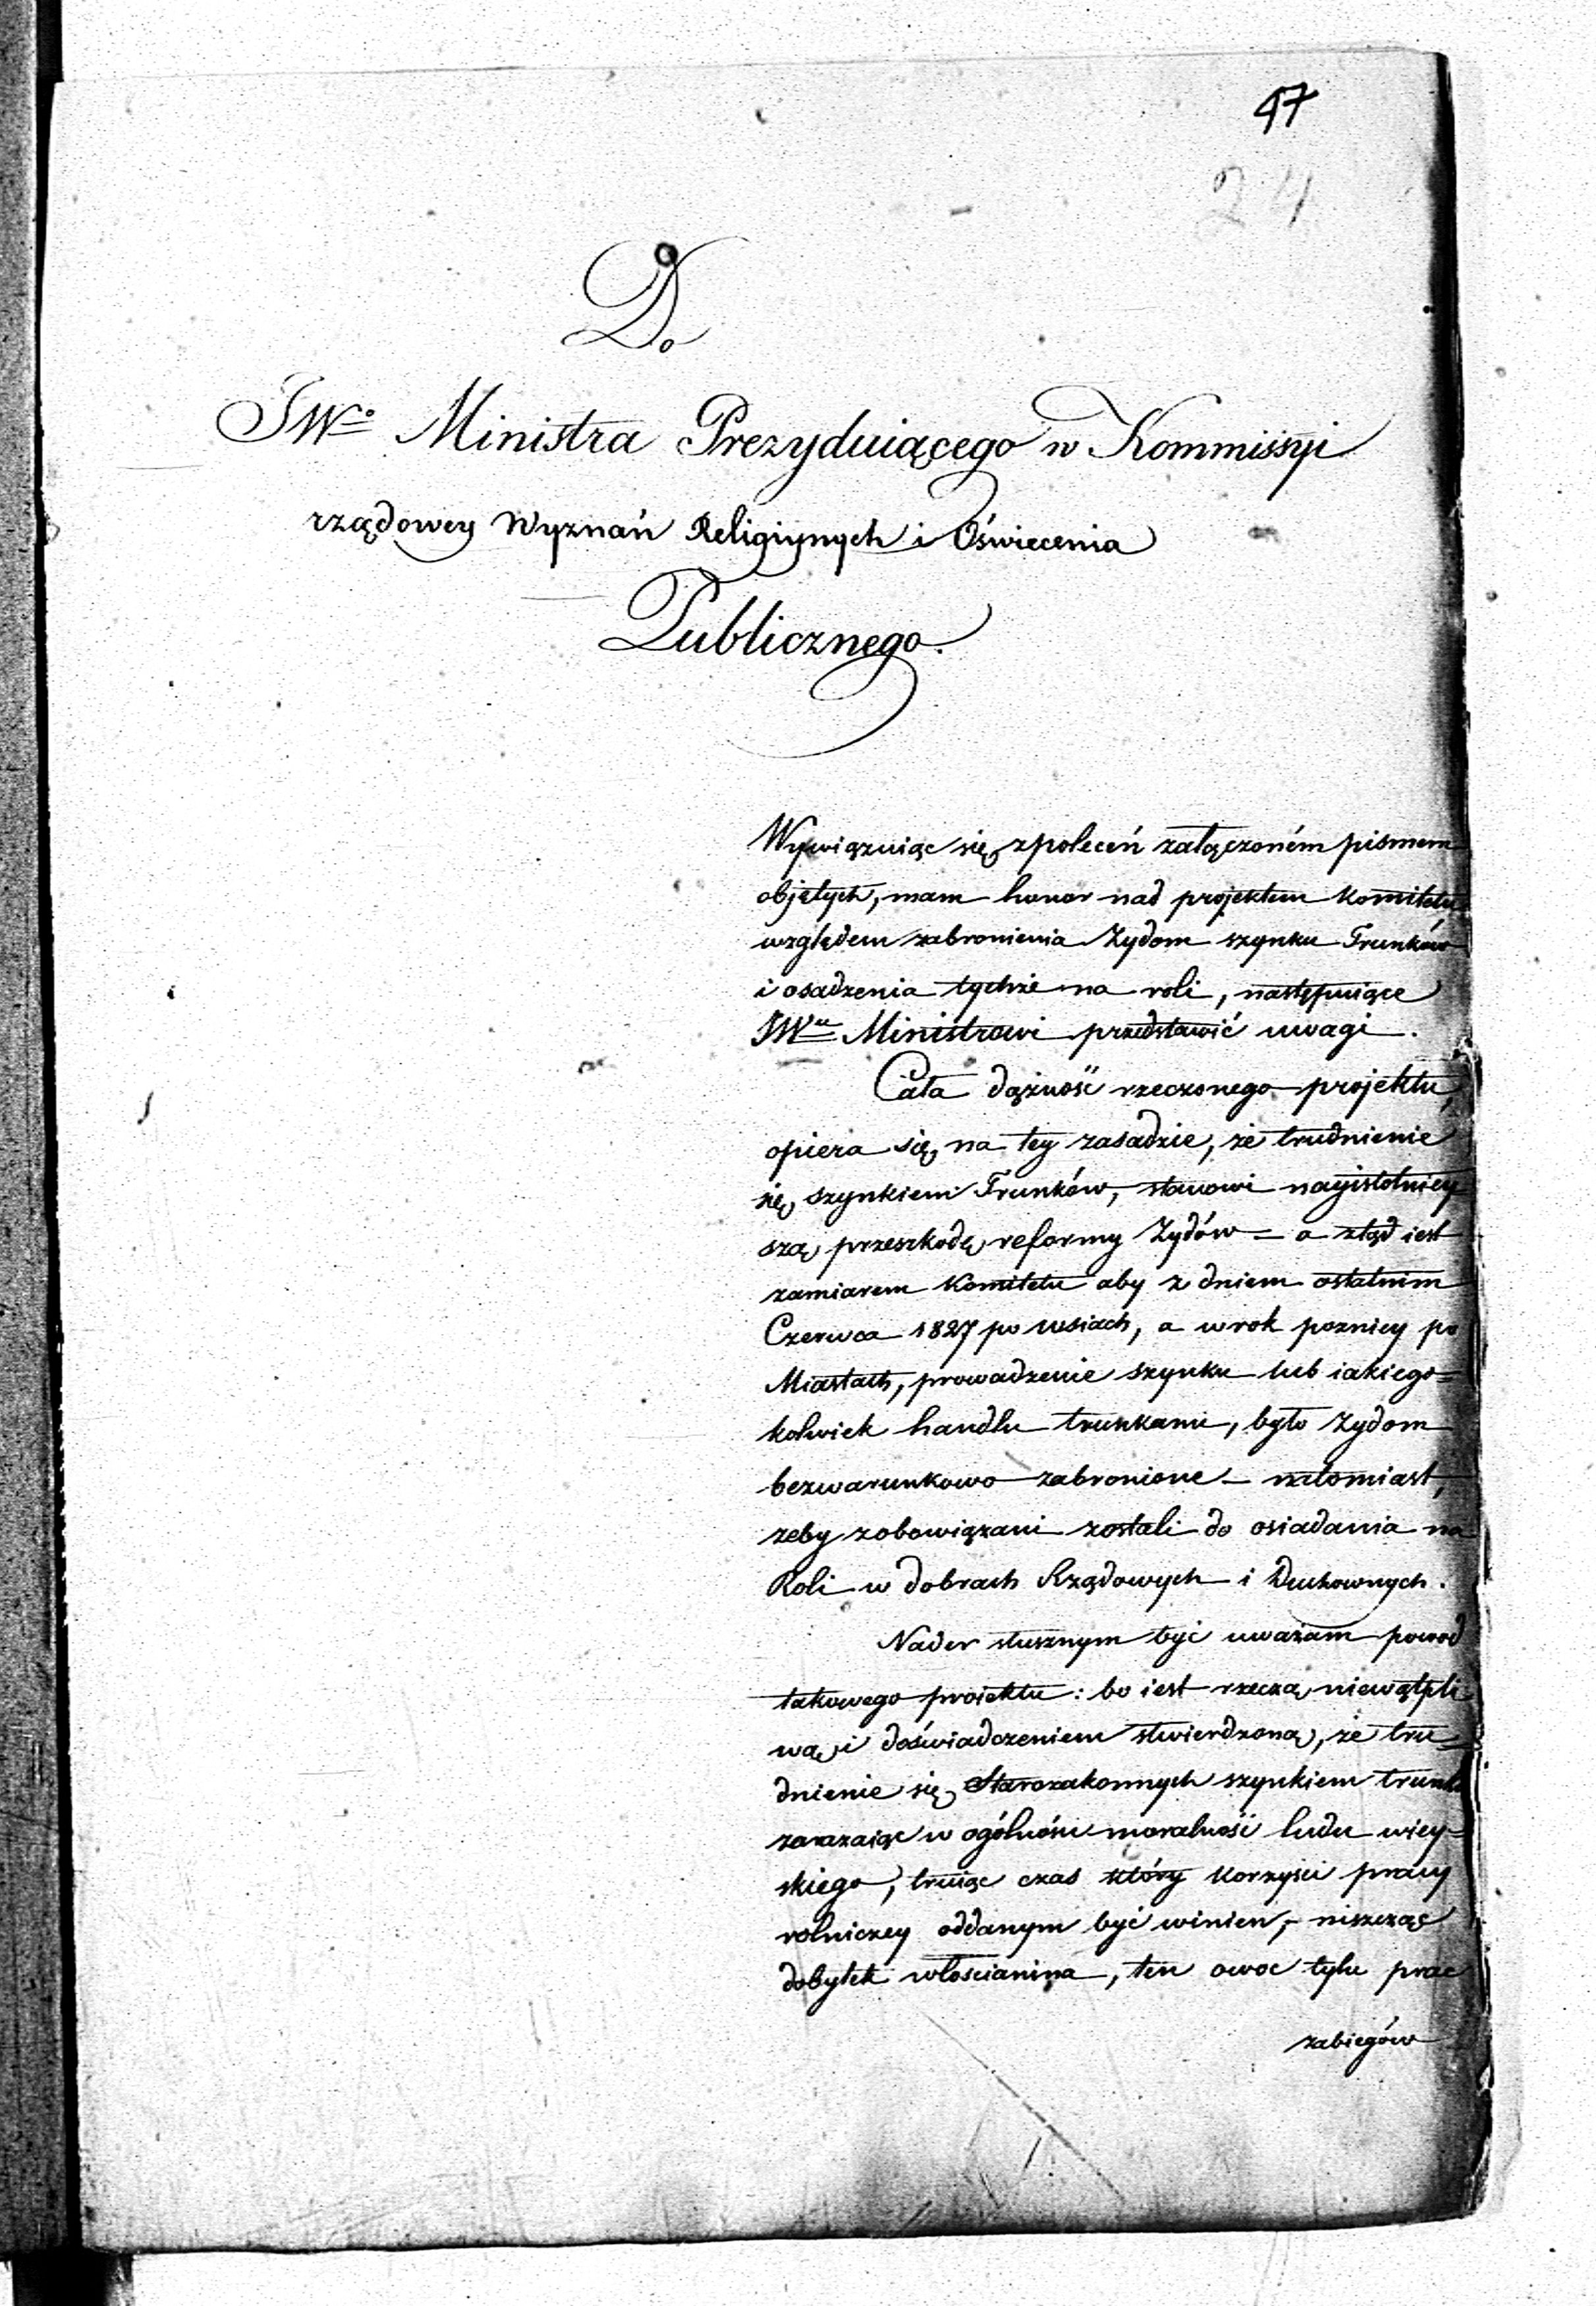 47
24
Do
JWo Ministra Prezyduiącego w Kommissyi
rządowey Wyznań Religiynych i Oświecenia
Publicznego.
Wywiązuiąc się z poleceń załączoném pismem
objętych, mam honor nad projektem Komitetu
względem zabronienia Żydom szynku Trunków
i osadzenia tychże na roli, następuiące
JWu Ministrowi przedstawić uwagi.
Cała dążność rzeczonego projektu,
opiera się na tey zasadzie, że trudnienie
się szynkiem Trunków, stanowi nayistotniey
szą przeszkodę reformy Żydów = a ztąd iest
zamiarem Komitetu aby z dniem ostatnim
Czerwca 1827 po wsiach, a w rok pozniey po
Miastach, prowadzenie szynku lub iakiego=
kolwiek handlu trunkami, było Żydom
bezwarunkowo zabronione – natomiast,
żeby zobowiązani zostali do osiadania na
Roli w dobrach Rządowych i Duchownych.
Nader słusznym być uważam powod
takowego proiektu: bo iest rzeczą niewątpli
wą i doświadczeniem stwierdzoną, że tru=
dnienie się Starozakonnych szynkiem
zarażaiąc w ogólności moralność ludu wiey=
skiego, truiąc czas który korzyści pracy
rolniczey oddanym być winien, – niszcząc
dobytek włościanina, ten owoc tylu prac
zabiegów